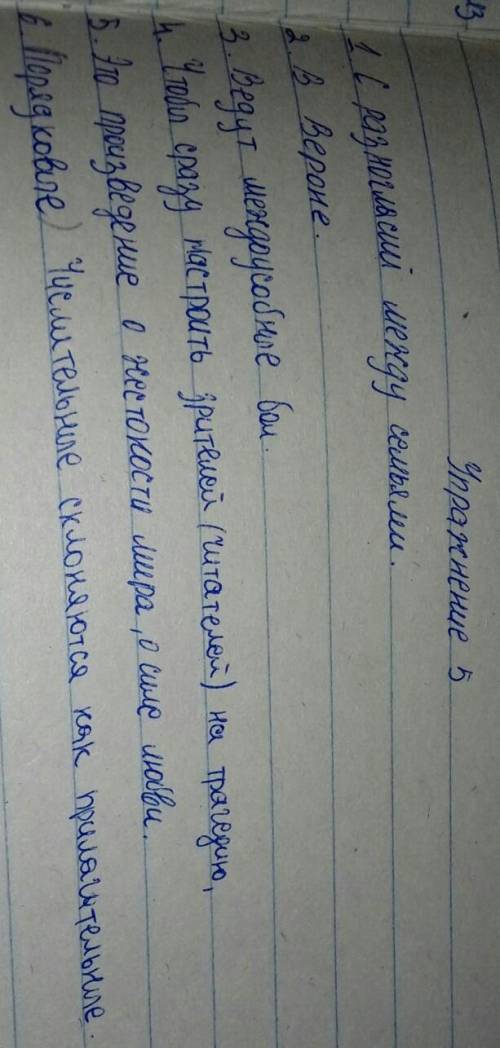 13
Упражнение 5
1 С разногласий между семьями.
2 В Вероне.
3. Ведут междоусобные бои.
4. Чтобы сразу настроить зрителей (читателей) на трагедию,
5. Это произведение о жестокости мира, о силе любви.
6 Порядковые) Числительные склоняются как прилагательные.